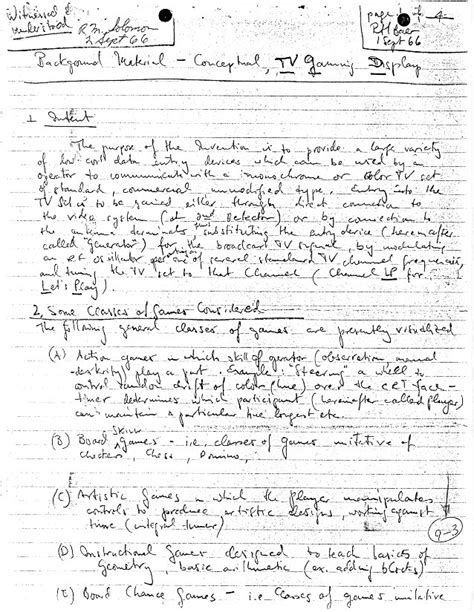 Witnessed &
understood
R.M. Solomon
2 Sept 66
page 1 of 4
RHBaer
1 Sept 66
Background Material - Conceptual, TV Gaming Display
1 Intent
The purpose of the Invention is to provide a large variety
of low cost data entry devices which can be used by an
operator to communicate with a monochrome or color TV set
of standard, commercial unmodified type. Entry into the
TV Set is to be gained either through direct connection to
the video system (at 2nd Detector) or by connection to
the antenna terminals thus substituting the entry device (hereinafter
called "generator") for the broadcast TV signal, by modulating
an RF oscillator operating on one of several standard TV channel frequencies,
and tuning the TV set to that Channel (Channel LP for
Let's Play).
2, Some Classes of Games Considered
The following general classes of games are presently visualized
(A) Action games in which skill of operator (observation, manual
dexterity) play a part. Example: "Steering" a wheel to
control random drift of color (hue) over the CRT face -
timer determines which participant (hereinafter called player)
can maintain a particular hue longest etc.
(B) Board Skill Games - i.e. classes of games imitative of
checkers, Chess, Domino,
(C) Artistic Games in which the player manipulates
controls to produce artistic designs, working against
time (integral timer)
9-3
(D) Instructional Games designed to teach basics of
Geometry, basic arithmetic (ex. adding blocks)
(E) Board Chance Games - i.e. Classes of games imitative